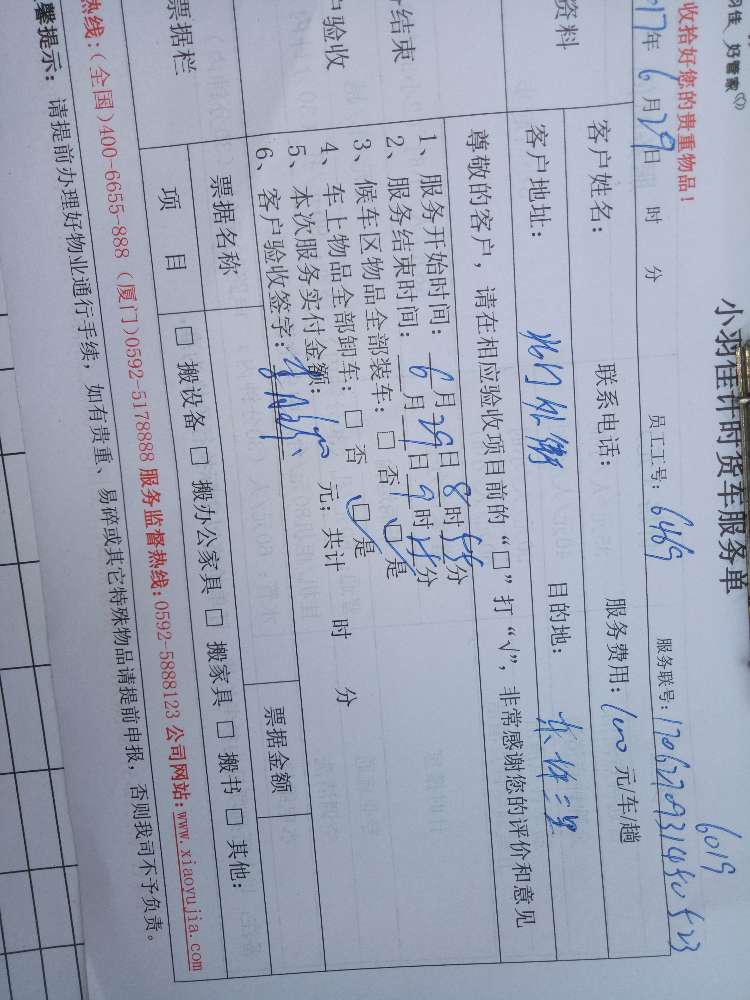 好管家
小羽佳计时货车服务单
收拾好您的贵重物品！
17年 6月29日 时 分 员工工号：6469 服务联号：
6019
客户姓名： 联系电话： 服务费用：100 元/车/趟
资料
客户地址： 目的地：
尊敬的客户，请在相应验收项目前的“□”打“√”，非常感谢您的评价和意见
结束
户验收
1、服务开始时间：6月29日8时55分
2、服务结束时间：
3、候车区物品全部装车：□ 否 □ 是
4、车上物品全部卸车：□ 否 □ 是
5、本次服务实付金额：100 元；共计 时 分
6、客户验收签字：
票据栏 票据名称 票据金额
项 目 □ 搬设备 □ 搬办公家具 □ 搬家具 □ 搬书 □ 其他：
热线:(全国)400-6655-888 (厦门)0592-5178888 服务监督热线:0592-5888123 公司网站:www.xiaoyujia.com
馨提示：请提前办理好物业通行手续，如有贵重、易碎或其它特殊物品请提前申报，否则我司不予负责。